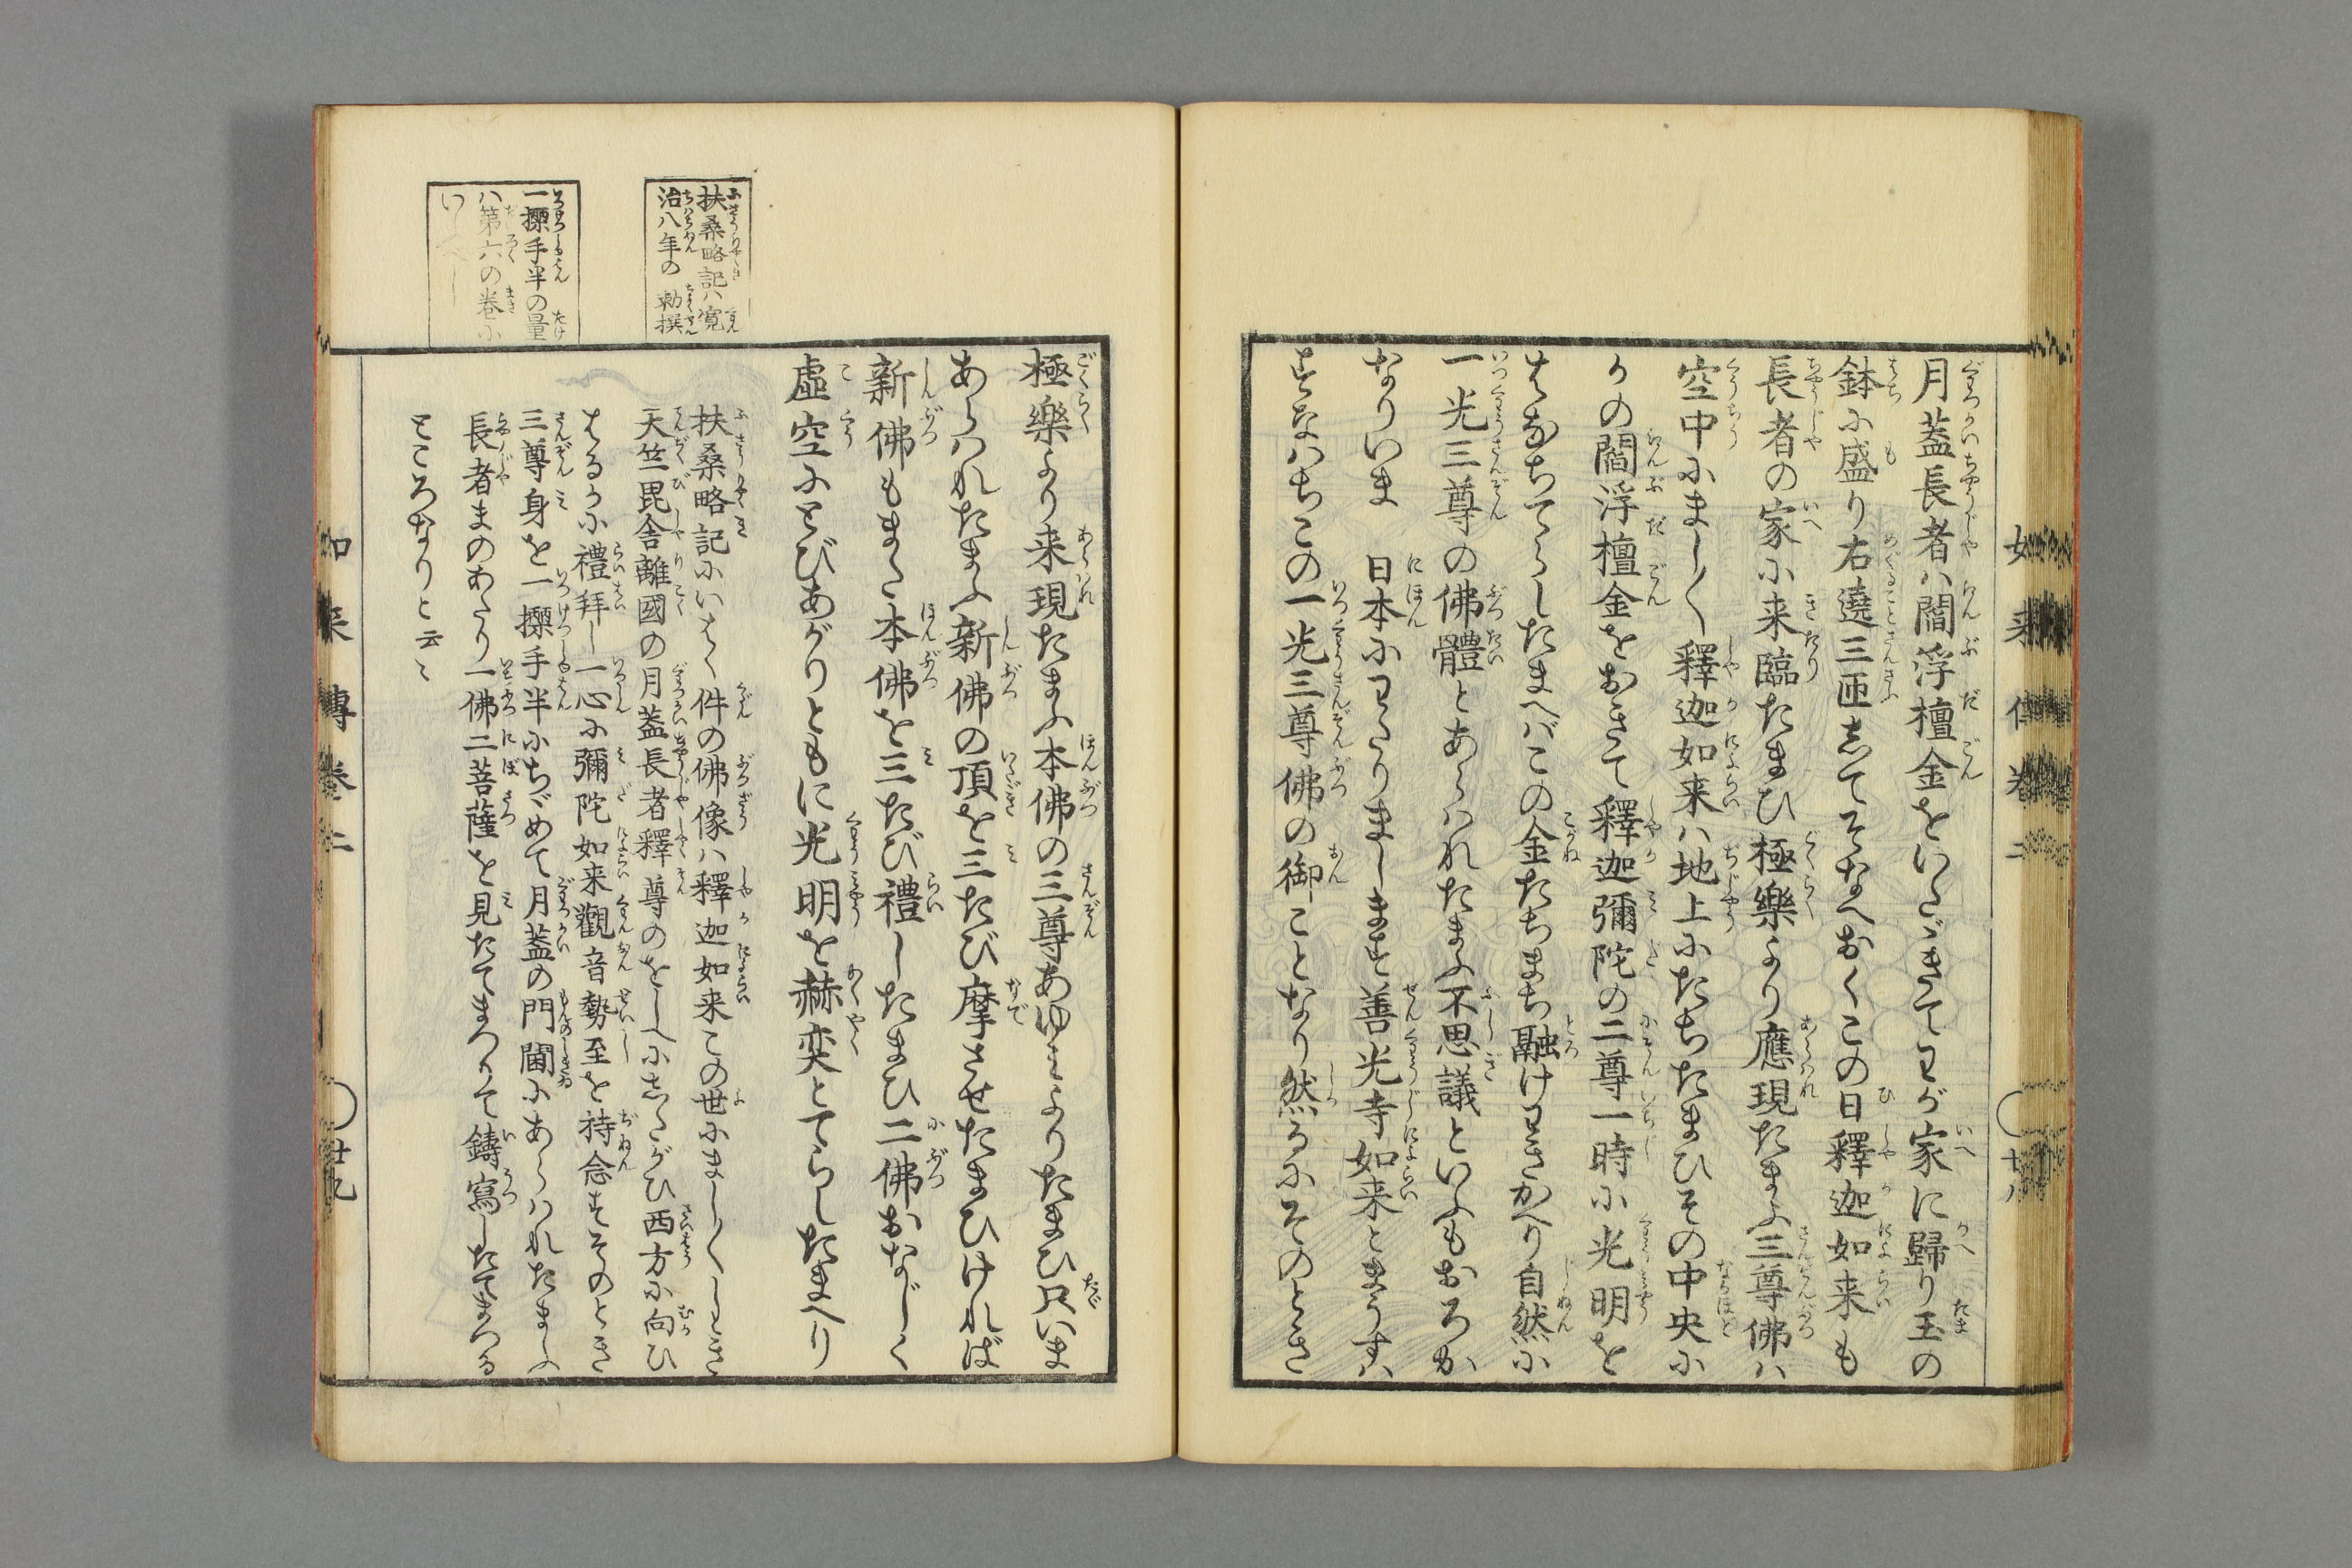 月蓋長者ハ閻浮檀金をいたゞきてわが家に歸り玉の
鉢に盛り右遶三匝してそなへおくこの日釋迦如来も
長者の家に来臨たまひ極樂より應現たまふ三尊佛ハ
空中にまし〳〵釋迦如来ハ地上にたちたまひその中央に
かの閻浮檀金をおきて釋迦彌陀の二尊一時に光明を
はなちてらしたまへバこの金たちまち融けわきかへり自然に
一光三尊の佛體とあらハれたまふ不思議といふもおろか
なりいま 日本にわたりまします善光寺如来とまうすハ
すなハちこの一光三尊佛の御ことなり然るにそのとき
如来傳巻二 十八
極樂より来現たまふ本佛の三尊あゆみよりたまひ只いま
あらハれたまふ新佛の頂を三たび摩させたまひければ
新佛もまた本佛を三たび禮したまひ二佛おなじく
虚空にとびあがりともに光明を赫奕とてらしたまへり
扶桑略記ハ寛
治八年の 勅撰
扶桑略記にいはく件の佛像ハ釋迦如来この世にまし〳〵しとき
天竺毘舎離國の月蓋長者釋尊のをしへにしたがひ西方に向ひ
はるかに禮拜し一心に彌陀如来觀音勢至を持念すそのとき
三尊身を一搩手半にちゞめて月蓋の門閫にあらハれたまふ
長者まのあたり一佛二菩薩を見たてまつりて鑄寫したてまつる
ところなりと云〻
一搩手半の量
ハ第六の巻に
いふべし
如来傳巻二 十九